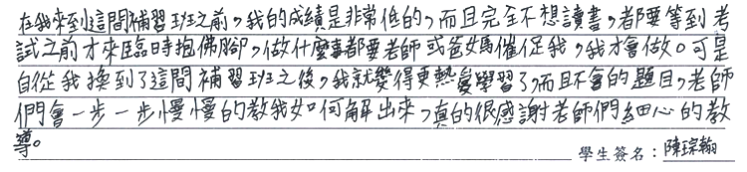 在我來到這間補習班之前,我的成績是非常低的,而且完全不想讀書,都要等到考
試之前才來臨時抱佛腳,做什麼事都要老師或爸媽催促我,我才會做。可是
自從我換到了這間補習班之後,我就變得更熱愛學習了,而且不會的題目,老師
們會一步一步慢慢的教我如何解出來,真的很感謝老師們細心的教
導。
學生簽名:陳琮翰